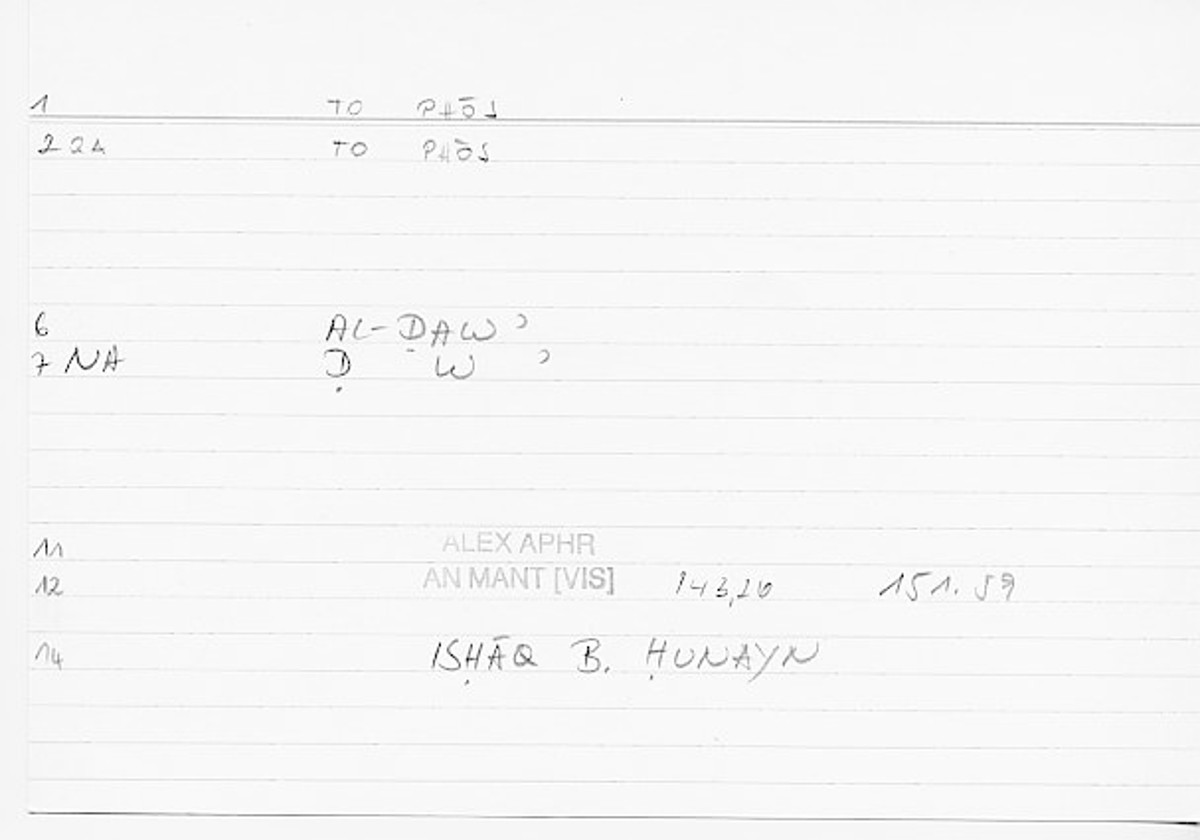 1 TO PHŌS
2 2A TO PHŌS
6 AL-ḌAWʾ
7 NA Ḍ W ʾ
11 ALEX APHR
12 AN MANT [VIS] 143,20 151.59
14 ISḤĀQ B. ḤUNAYN